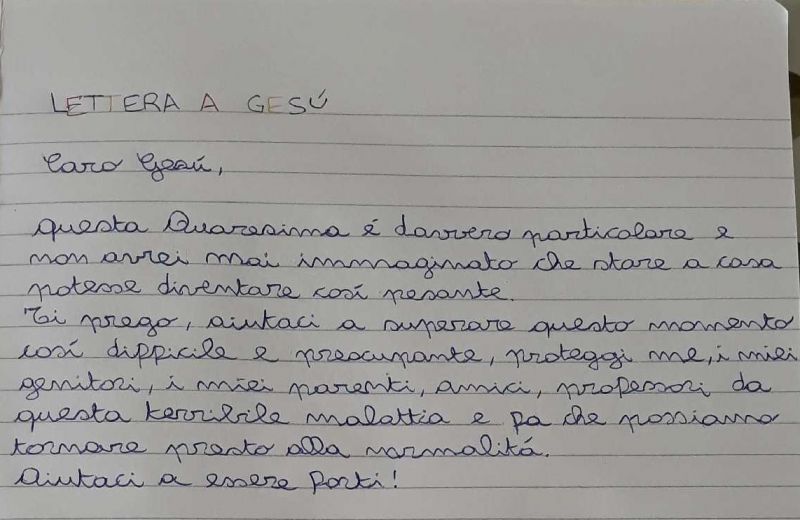 LETTERA A GESÚ
Caro Gesú,
questa Quaresima é davvero particolare e
non avrei mai immaginato che stare a casa
potesse diventare cosí pesante.
Ti prego, aiutaci a superare questo momento
cosí difficile e preocupante, proteggi me, i miei
genitori, i miei parenti, amici, professori da
questa terribile malattia e fa che possiamo
tornare presto alla normalitá.
Aiutaci a essere forti!